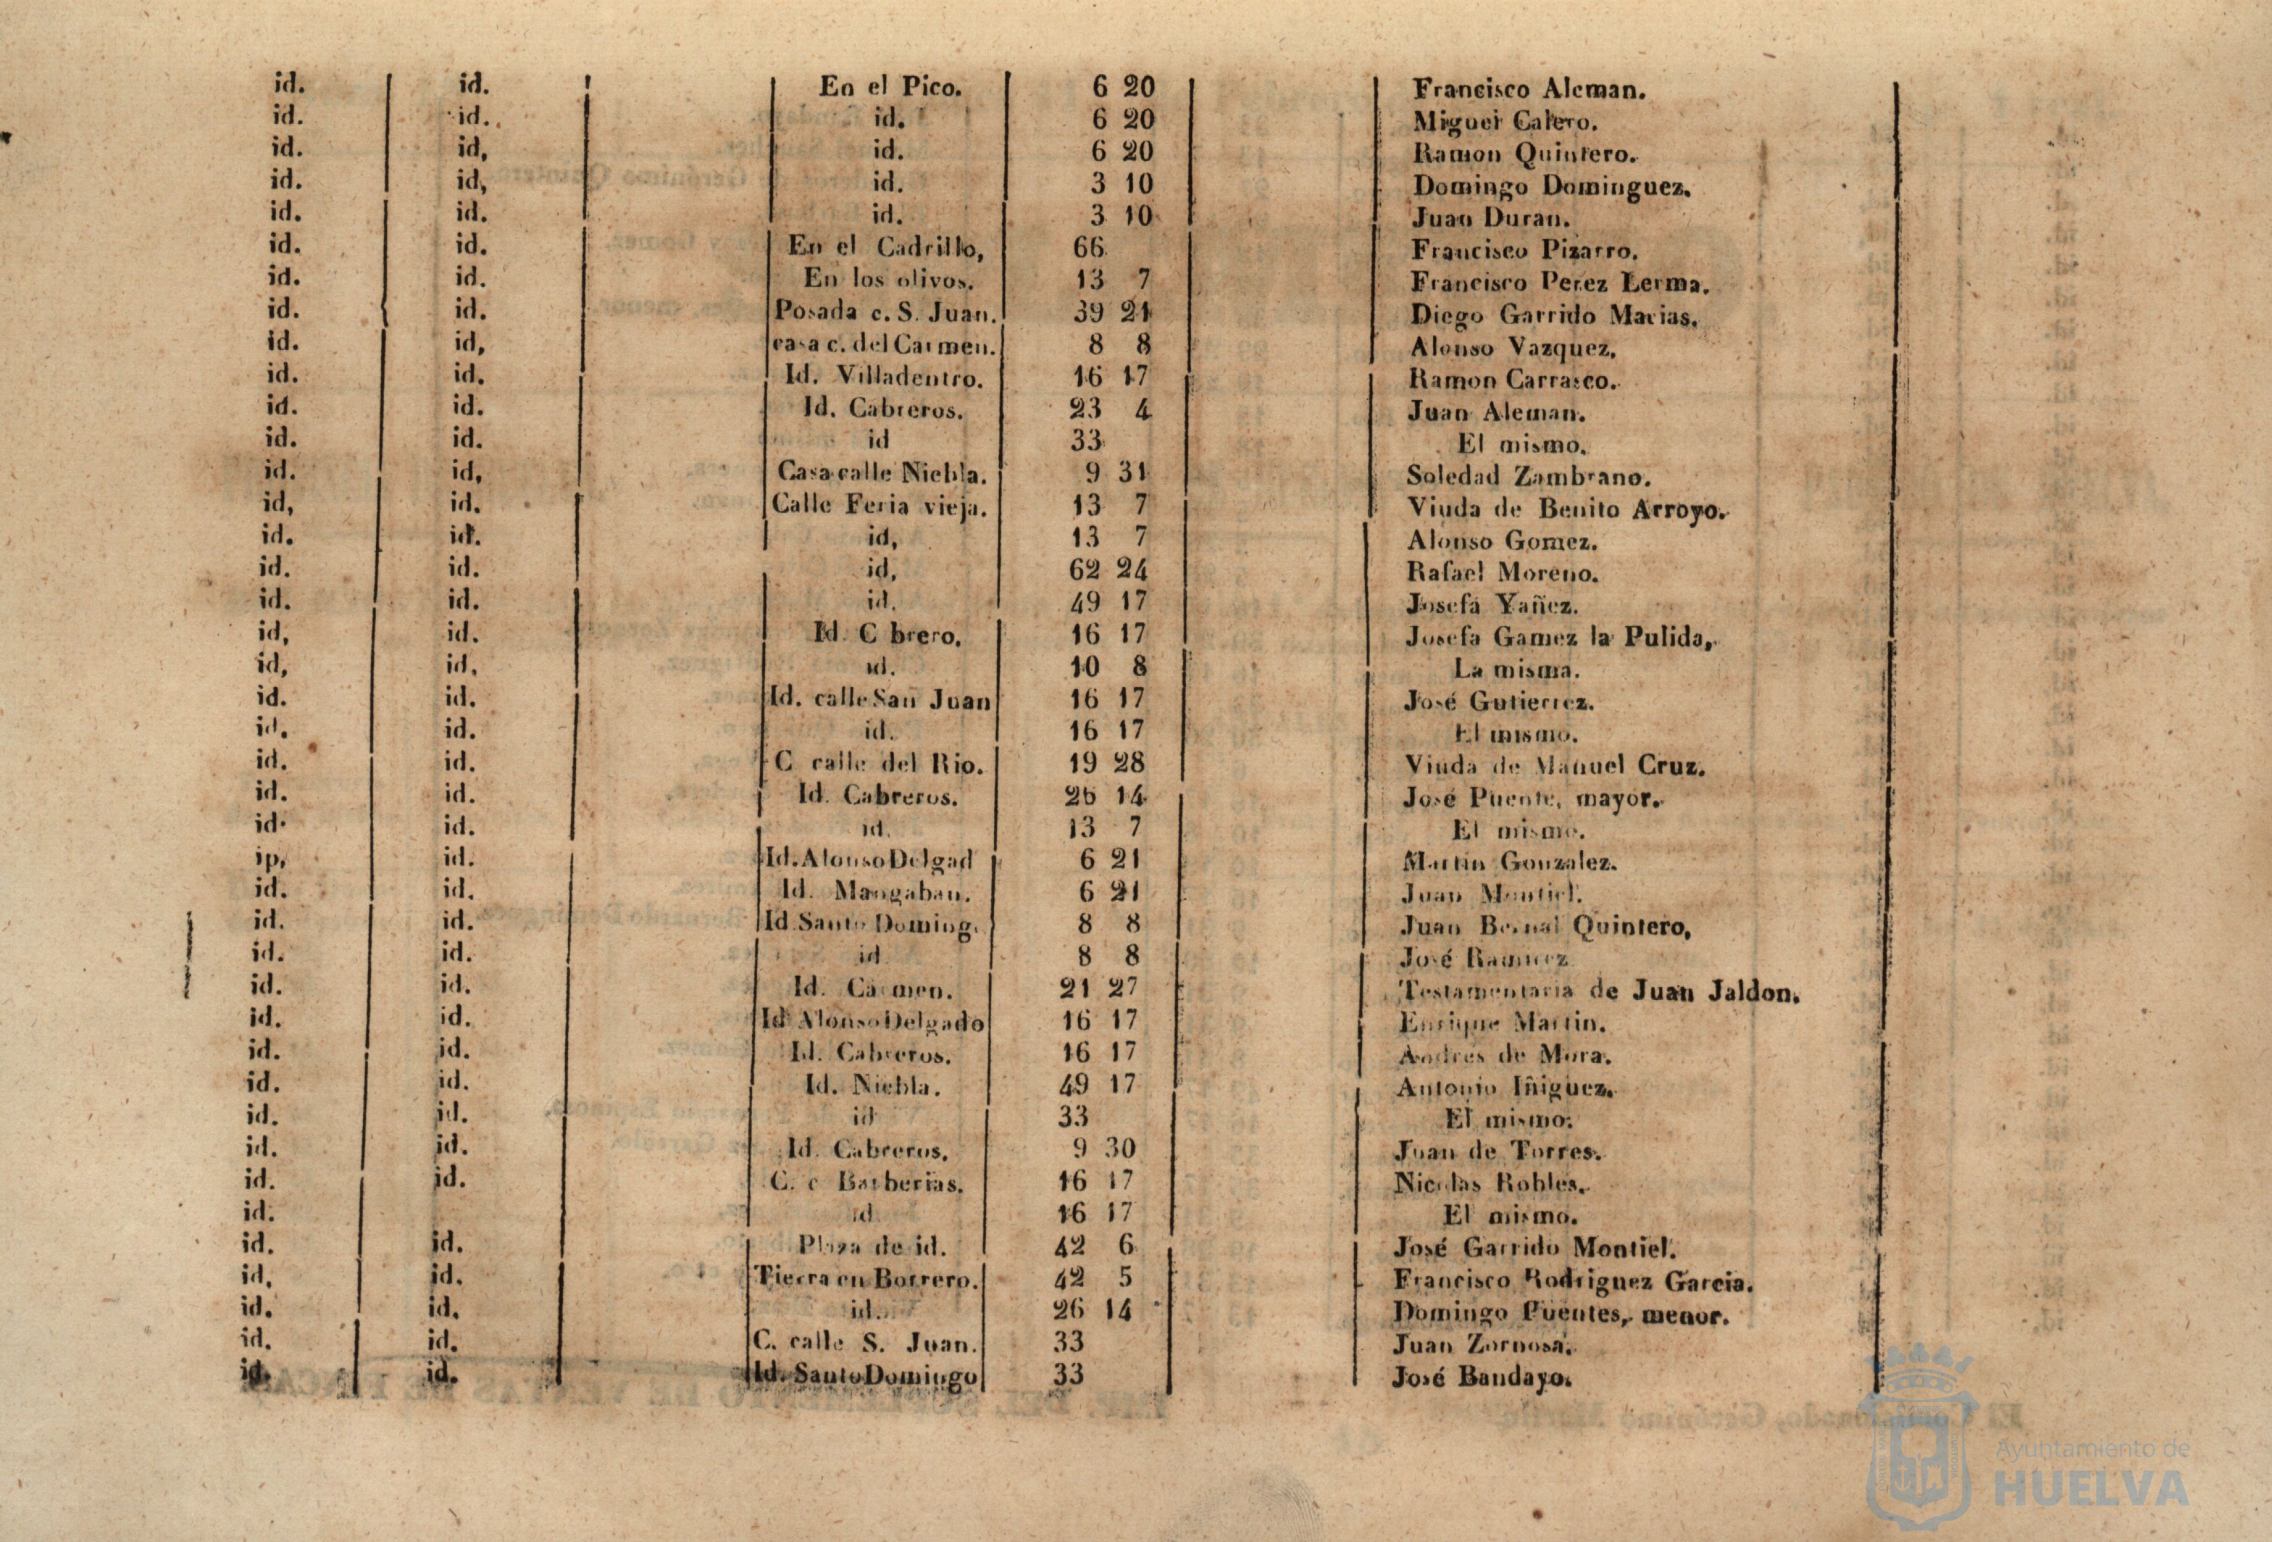 id. id. En el Pico. 6 20 Francisco Aleman.
id. id. id. 6 20 Miguel Calero.
id. id, id. 6 20 Ramon Quintero.
id. id, id. 3 10 Domingo Dominguez.
id. id. id. 3 10 Juan Duran.
id. id. En el Cadrillo, 66 Francisco Pizarro.
id. id. En los olivos. 13 7 Francisco Perez Lerma.
id. id. Posada c. S. Juan. 39 21 Diego Garrido Macias.
id. id, casa c. del Carmen. 8 8 Alonso Vazquez.
id. id. Id. Villadentro. 16 17 Ramon Carrasco.
id. id. Id. Cabreros. 23 4 Juan Aleman.
id. id. id 33 El mismo.
id. id, Casa calle Niebla. 9 31 Soledad Zambrano.
id, id. Calle Feria vieja. 13 7 Viuda de Benito Arroyo.
id. id. id, 13 7 Alonso Gomez.
id. id. id, 62 24 Rafael Moreno.
id. id. id. 49 17 Josefa Yañez.
id, id. Id. C brero. 16 17 Josefa Gamez la Pulida,
id, id, id. 10 8 La misma.
id. id. Id. calle San Juan 16 17 José Gutierrez.
id. id. id. 16 17 El mismo.
id. id. C calle del Rio. 19 28 Viuda de Manuel Cruz.
id. id. Id. Cabreros. 26 14 José Puente, mayor.
id. id. id. 13 7 El mismo.
ip, id. Id. Alonso Delgad 6 21 Martin Gonzalez.
id. id. Id. Mangaban. 6 21 Juan Montiel.
id. id. Id Santo Doming. 8 8 Juan Bernal Quintero,
id. id. id 8 8 José Ramirez
id. id. Id. Carmen. 21 27 Testamentaria de Juan Jaldon.
id. id. Id Alonso Delgado 16 17 Enrique Martin.
id. id. Id. Cabreros. 16 17 Andres de Mora.
id. id. Id. Niebla. 49 17 Antonio Iñiguez.
id. id. id 33 El mismo.
id. id. Id. Cabreros. 9 30 Juan de Torres.
id. id. C. c Barberias. 16 17 Nicolas Robles.
id. id. 16 17 El mismo.
id. id. Plaza de id. 42 6 José Garrido Montiel.
id, id. Tierra en Borrero. 42 5 Francisco Rodriguez Garcia.
id. id. id. 26 14 Domingo Puentes, menor.
id. id. C. calle S. Juan. 33 Juan Zornosa.
id. id. Id. Santo Domingo 33 José Bandayo.
Ayuntamiento de
HUELVA